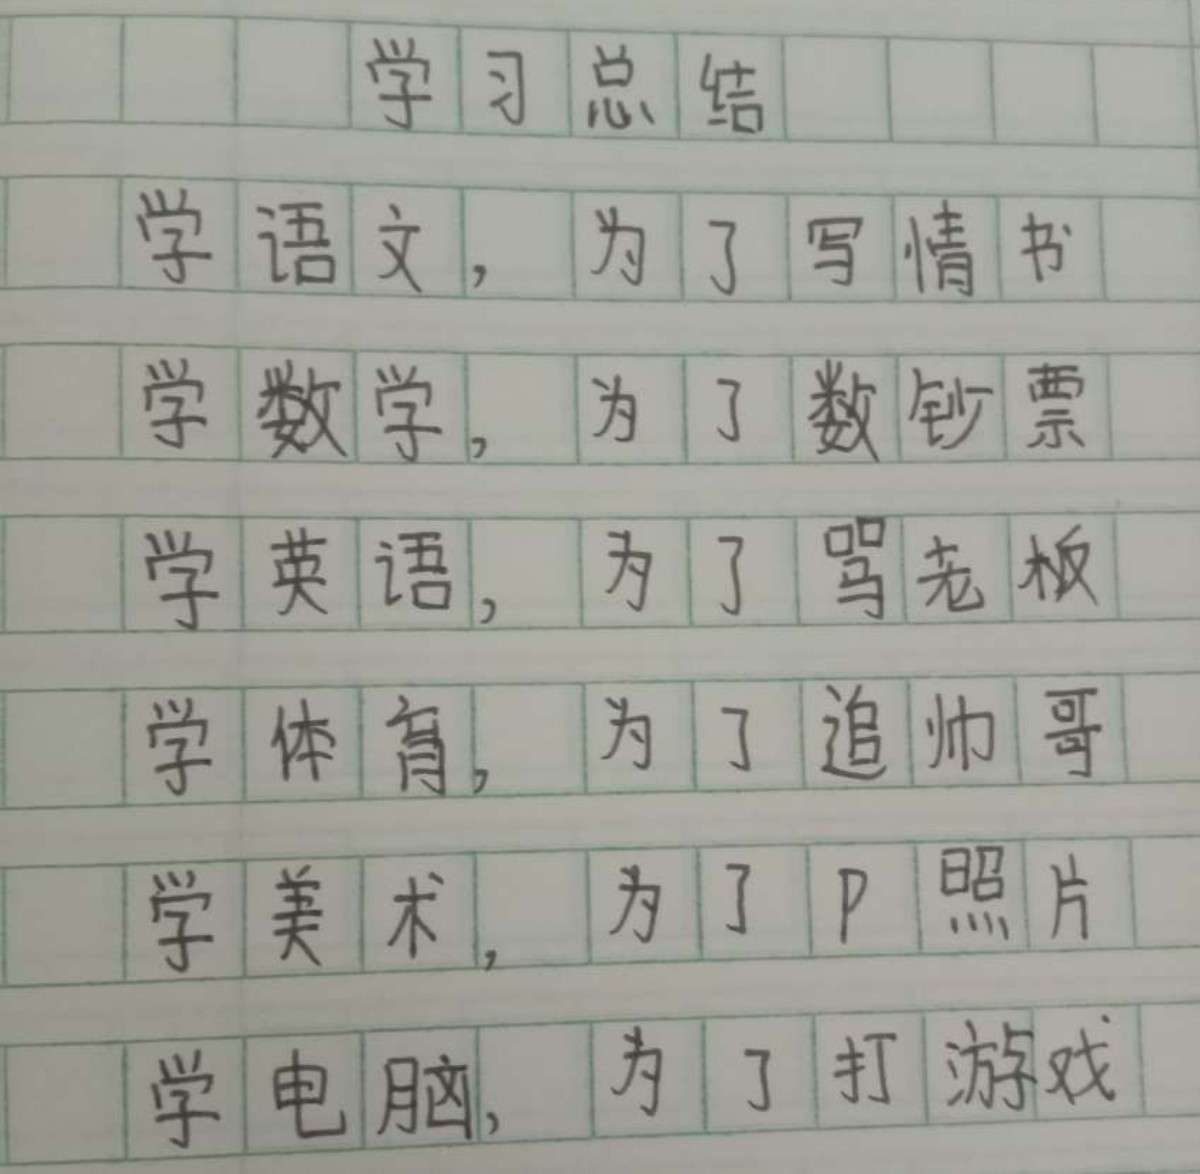 学习总结
学语文，为了写情书
学数学，为了数钞票
学英语，为了骂老板
学体育，为了追帅哥
学美术，为了P照片
学电脑，为了打游戏